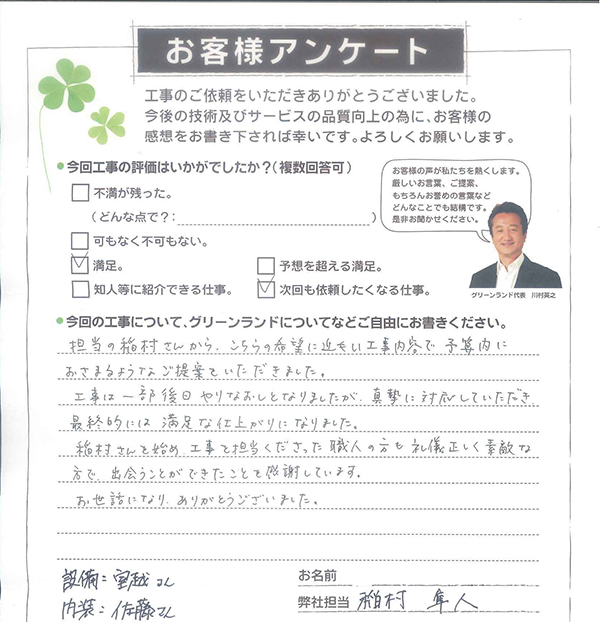 お客様アンケート
工事のご依頼をいただきありがとうございました。
今後の技術及びサービスの品質向上の為に、お客様の
感想をお書き下されば幸いです。よろしくお願いします。
●今回工事の評価はいかがでしたか？(複数回答可)
不満が残った。
(どんな点で？:　)
可もなく不可もない。
満足。
予想を超える満足。
知人等に紹介できる仕事。
次回も依頼したくなる仕事。
お客様の声が私たちを熱くします。
厳しいお言葉、ご提案、
もちろんお誉めの言葉など
どんなことでも結構です。
是非お聞かせください。
グリーンランド代表　川村英之
●今回の工事について、グリーンランドについてなどご自由にお書きください。
担当の稲村さんから、こちらの希望に近い工事内容で予算内に
おさまるようなご提案をいただきました。
工事は一部後日やりなおしとなりましたが、真摯に対応していただき
最終的には満足な仕上がりになりました。
稲村さんを始め、工事を担当くださった職人の方も礼儀正しく素敵な
方で、出会うことができたことを感謝しています。
お世話になり、ありがとうございました。
設備:室越さん
内装:佐藤さん
お名前
弊社担当 稲村 隼人